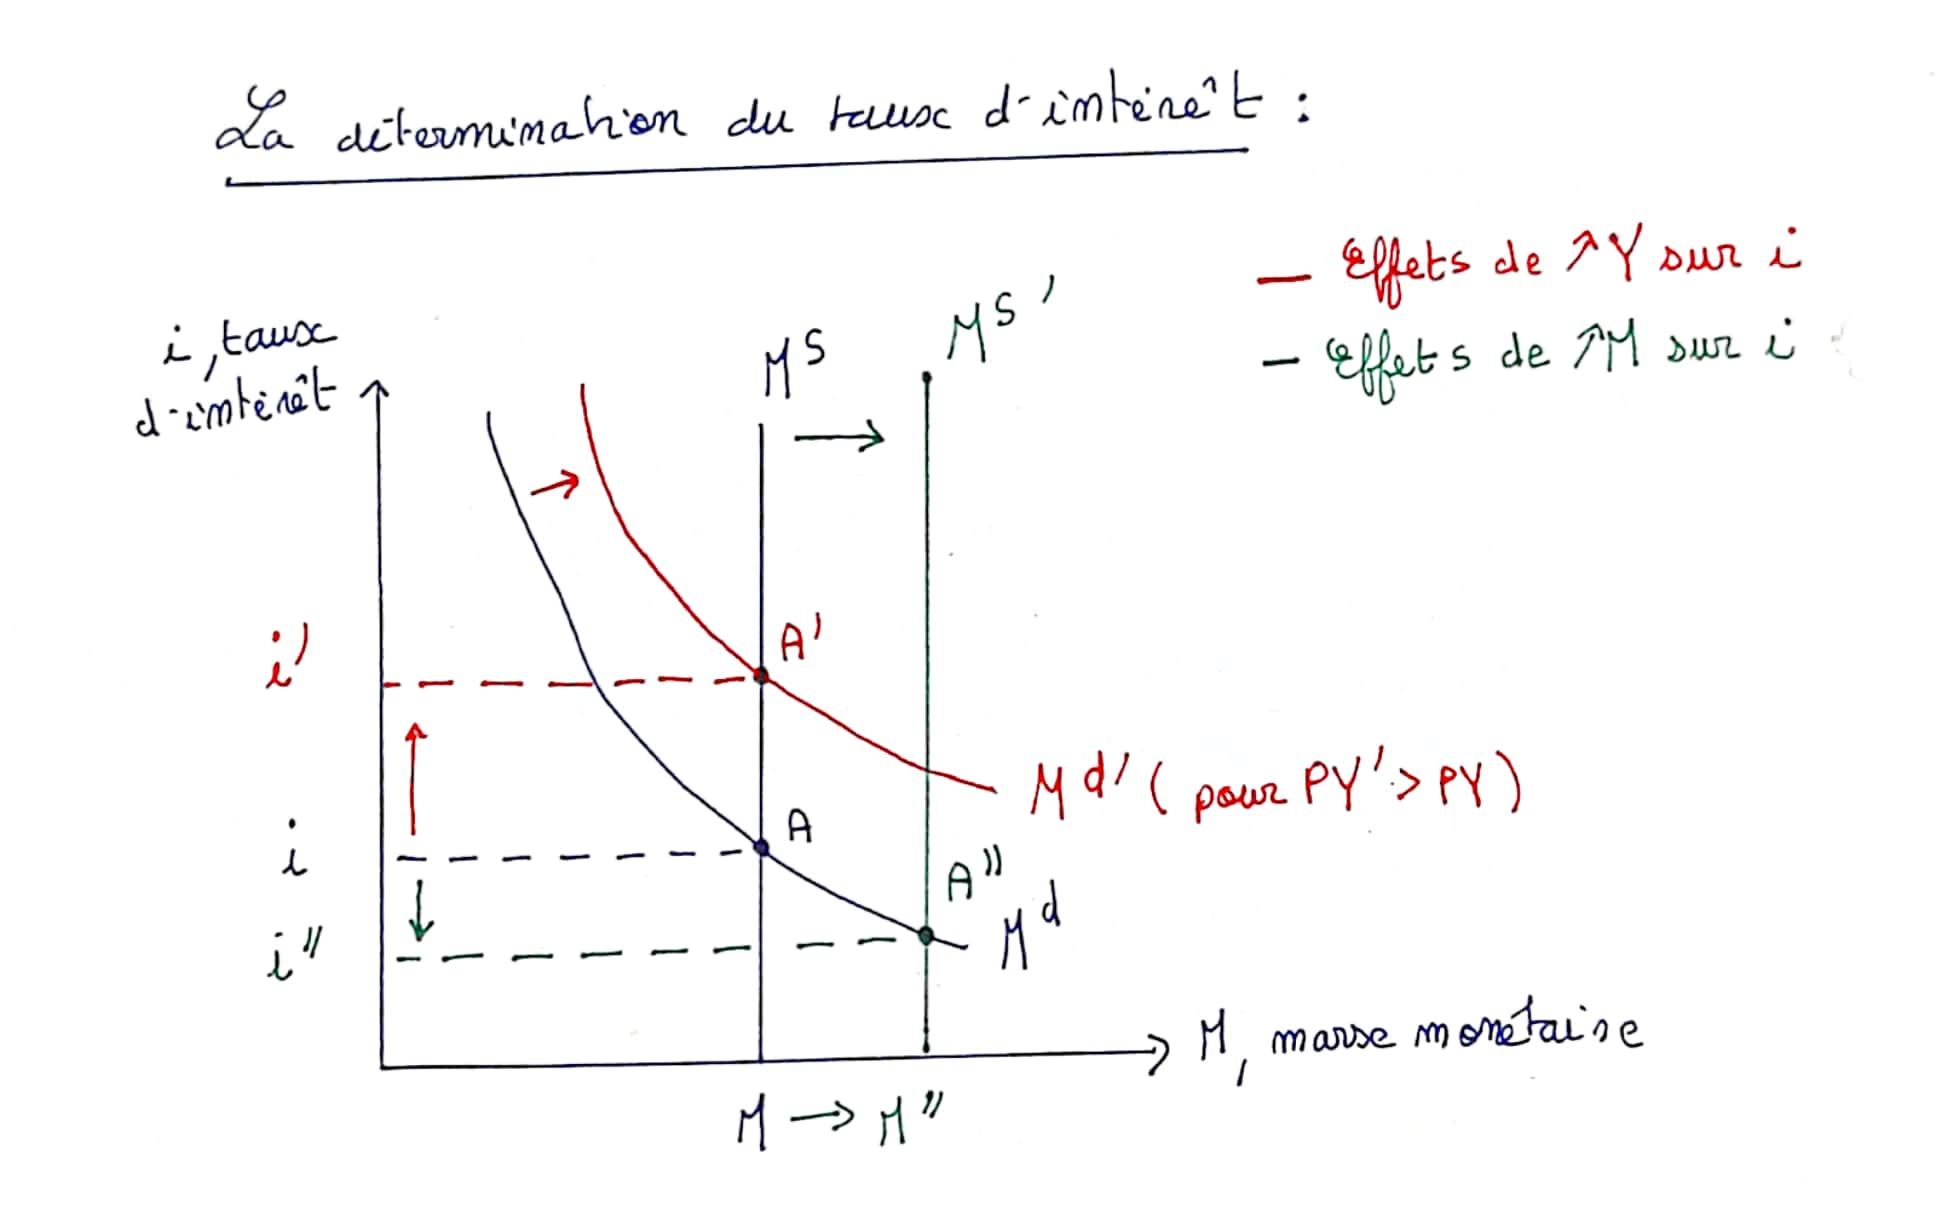 La détermination du taux d'intérêt :
— Effets de ↑Y sur i
— Effets de ↑M sur i
i, taux
d'intérêt
M^S
M^S'
→
→
A'
i'
M^d' (pour PY' > PY)
A
i
A''
M^d
i''
M, masse monétaire
M → M''